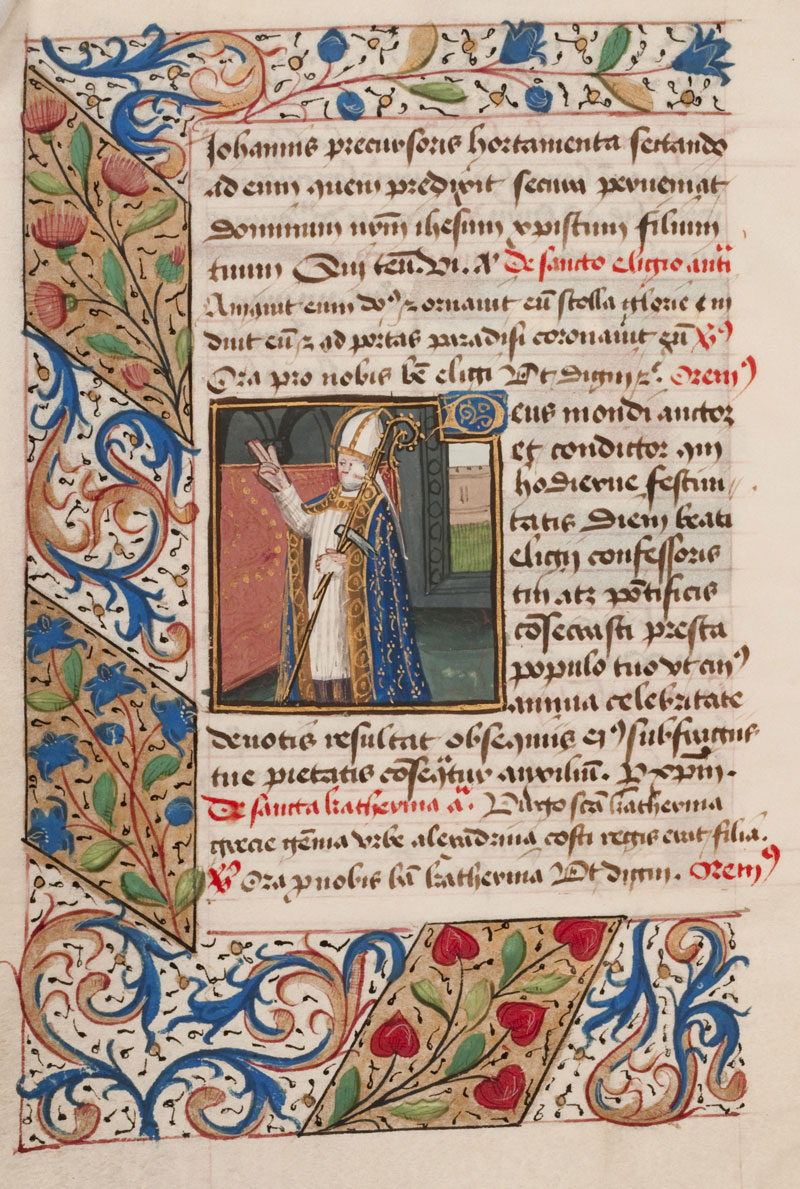 Iohannis precursoris hortamenta sectando
ad eum quem predixit secura perueniat
dominum nr̄m ihesum xpistum filium
tuum Qui tecū. vi. &c De sancto eligio anti
Amauit eum doꝰ ⁊ ornauit eū stolla glorie in
duit eū ⁊ ad portas paradisi coronauit eū ℣ꝰ
Ora pro nobis bē eligi Vt digni ⁊c. Oremꝰ
Deus mondi auctor
et conditor qui
hodierne festiui
tatis diem beati
eligii confessoris
tui atqꝫ pōtificis
cōsecrasti presta
populo tuo vt cuiꝰ
annua celebritate
deuotis resultat obsequiis eiꝰ suffragiis
tue pietatis cōseqͣtur auxiliū. P xp̄m.
De sancta katherina aͣ. Virgo scā katherina
grecie gēma vrbe alexādrina costi regis erat filia.
℣ Ora p nobis bā katherina Vt digni. Oremꝰ